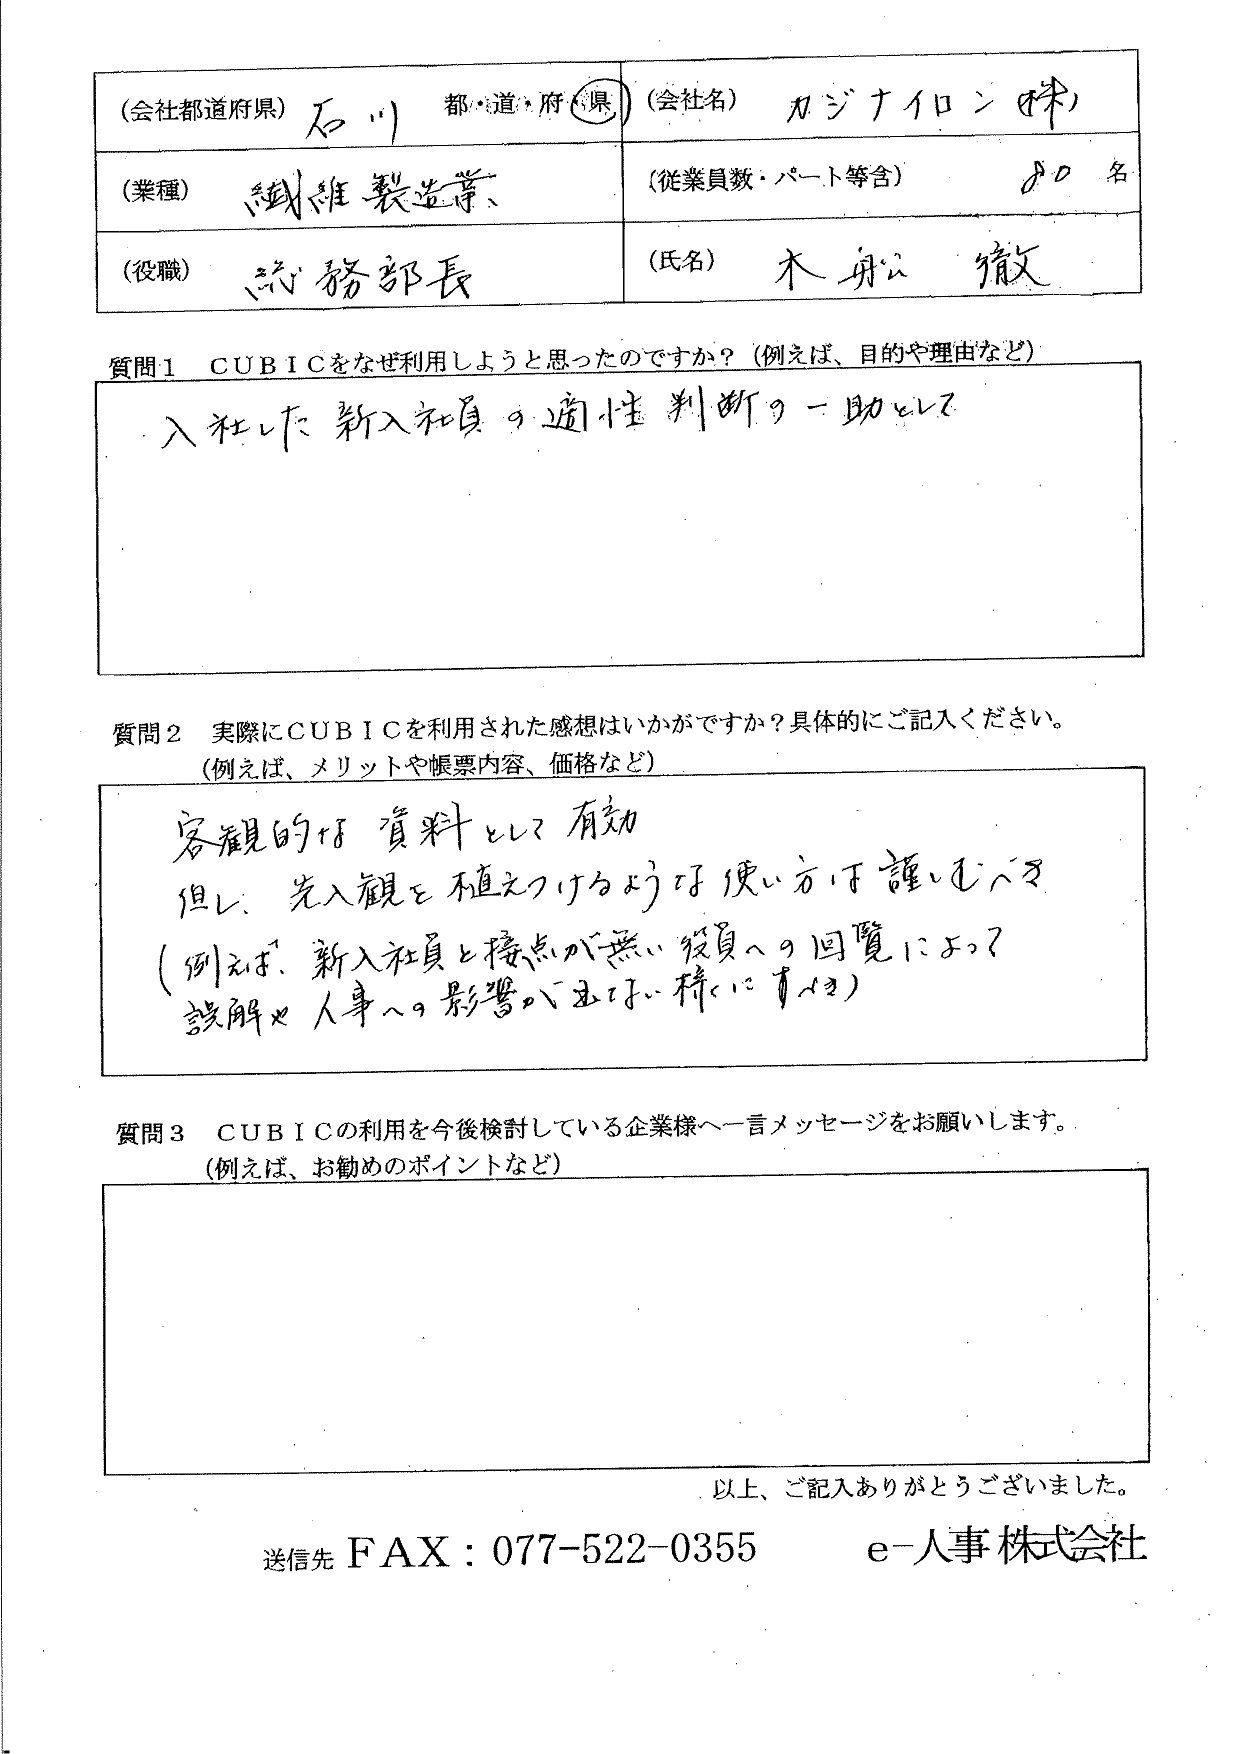 (会社都道府県) 石川 都・道・府・県 (会社名) カジナイロン(株)
(業種) 繊維製造業 (従業員数・パート等含) 80 名
(役職) 総務部長 (氏名) 木船 徹
質問1 CUBICをなぜ利用しようと思ったのですか?(例えば、目的や理由など)
入社した新入社員の適性判断の一助として
質問2 実際にCUBICを利用された感想はいかがですか?具体的にご記入ください。
(例えば、メリットや帳票内容、価格など)
客観的な資料として有効
但し、先入観を植えつけるような使い方は謹しむべき
(例えば、新入社員と接点が無い役員への回覧によって
誤解や人事への影響が出てない様にすべき)
質問3 CUBICの利用を今後検討している企業様へ一言メッセージをお願いします。
(例えば、お勧めのポイントなど)
以上、ご記入ありがとうございました。
送信先 FAX:077-522-0355 e-人事株式会社